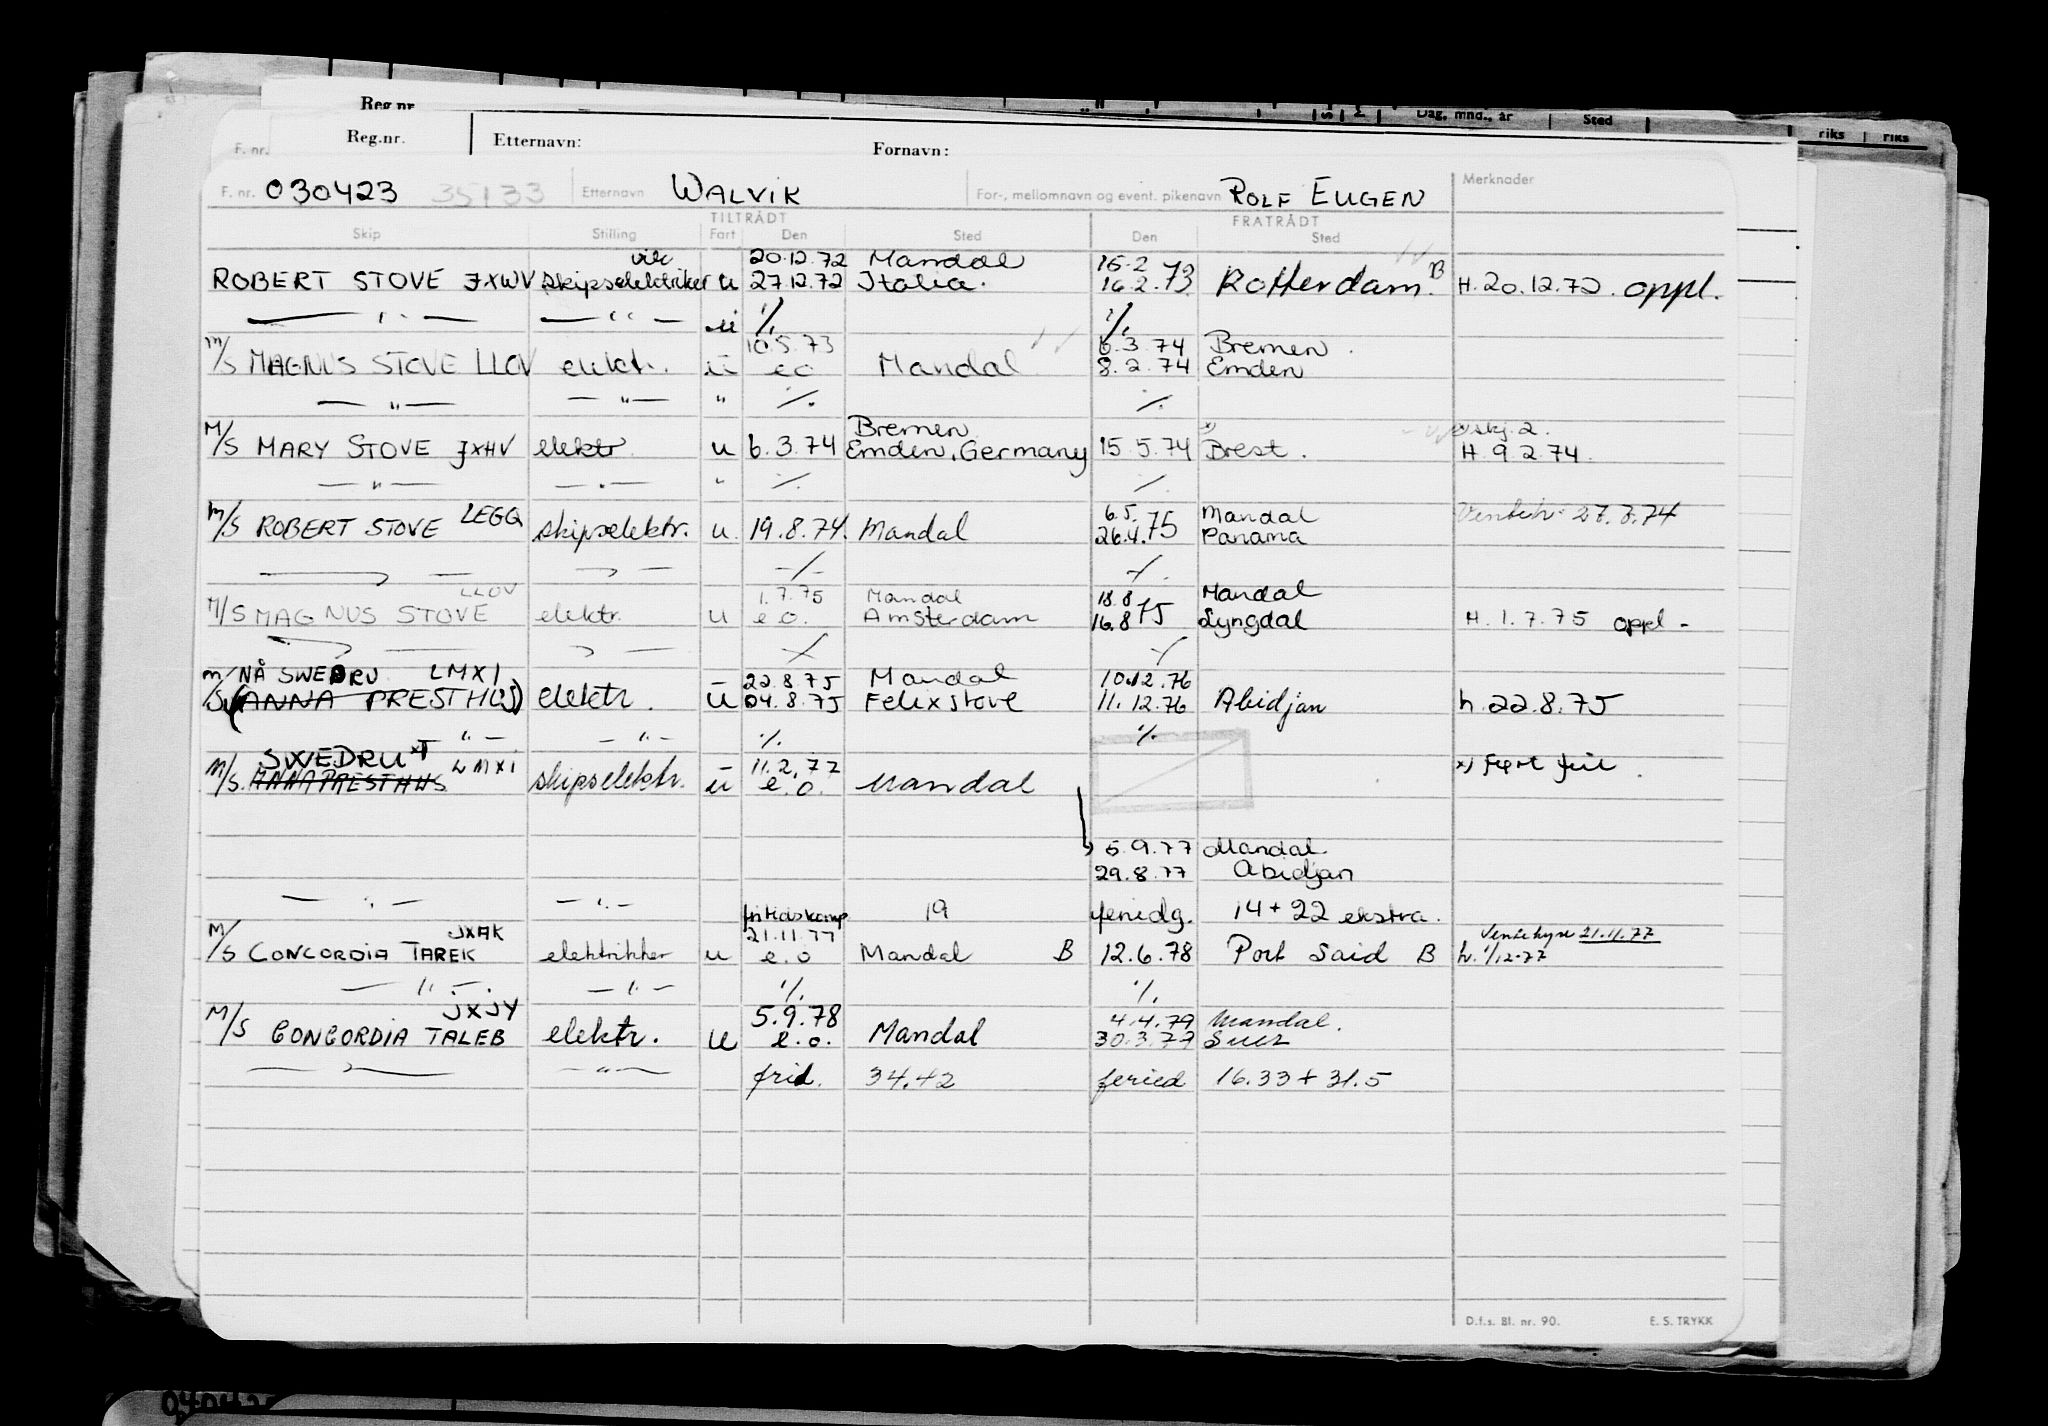 Reg.nr.
Dag, mnd., år Sted
riks riks
Reg.nr. Etternavn: Fornavn:
F. nr.
F. nr. 030423 35133 Etternavn WALVIK For-, mellomnavn og event. pikenavn ROLF EUGEN Merknader
TILTRÅDT FRATRÅDT
Skip Stilling Fart Den Sted Den Sted
vik 20.12.72 Mandal 15.2
ROBERT STOVE JXWV skipselektriker u 27.12.72 Italia. 16.2.73 Rotterdam. B H. 20.12.72. oppl.
— " — — " — u % %
M/S MAGNUS STOVE LLOV elektr. u 10.5.73 Mandal 6.3.74 Bremen.
e.o 8.2.74 Emden
— " — — " — " % %
Bremen x) x) skj. 2.
M/S MARY STOVE JXHV elektr. u 6.3.74 Emden, Germany 15.5.74 Brest. H. 9.2.74.
— " — — " — " % %
LEGQ 6.5. Mandal 27.7.74
M/S ROBERT STOVE skipselektr. u. 19.8.74. Mandal 26.4.75 Panama
— " — — " — % %
LLOV 1.7.75 Mandal 18.8 Mandal
M/S MAGNUS STOVE elektr. u e.o. Amsterdam 16.8 75 Lyngdal H. 1.7.75 oppl -
— " — — " — % %
M/S NÅ SWEDRU LMXI 22.8.75 Mandal 10.12.76
(ANNA PRESTHUS) elektr. u 24.8.75 Felixstove 11.12.76 Abidjan h. 22.8.75
— " — — " — % %
SWEDRU xT LMXI 11.2.77 x)
M/S. ANNA PRESTHUS skipselektr. u e.o. Mandal
5.9.77 Mandal
29.8.77 Abidjan
— " — — " — fritidskomp 19 feriedg. 14 + 22 ekstra.
JXAK 21.11.77 Ventehyre 21.11.77
M/S CONCORDIA TAREK elektrikker u e.o Mandal B 12.6.78 Port Said B h. 1/12-77
— " — — " — % %
JXJY 5.9.78 4.4.79 Mandal.
M/S CONCORDIA TALEB elektr. u e.o. Mandal 30.3.79 Suez
— " — — " — frid. 34.42 feried 16.33 + 31.5
D.f.s. Bl. nr. 90. E. S. TRYKK